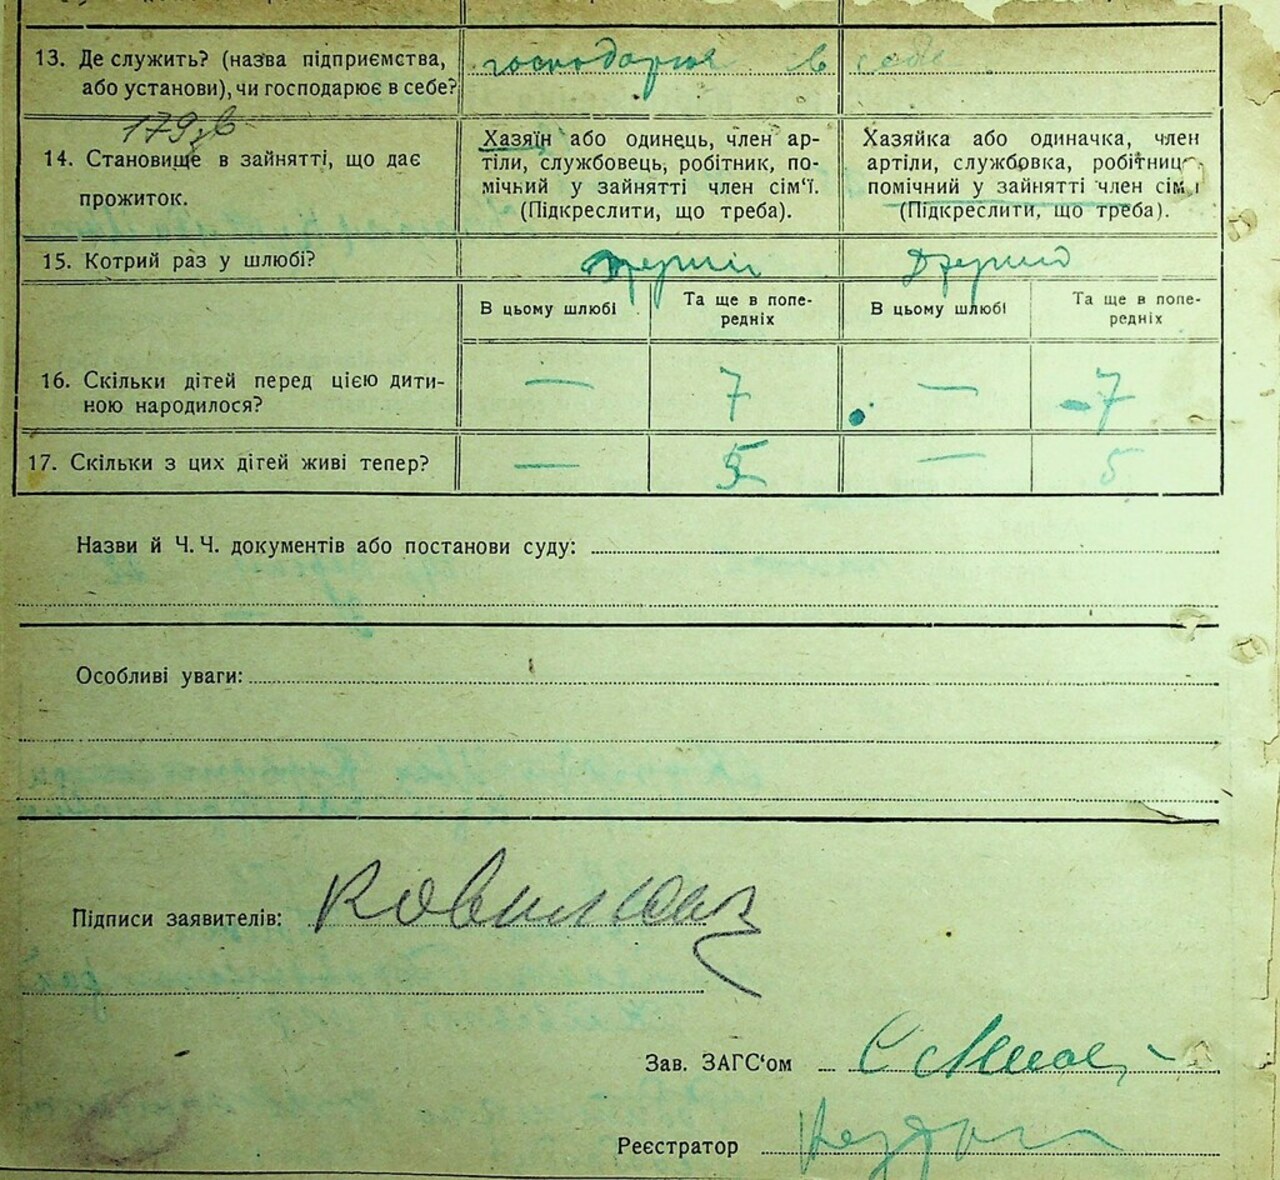 13. Де служить? (назва підприємства, або установи), чи господарює в себе?
господарює в себе
179зв
14. Становище в зайнятті, що дає прожиток.
Хазяїн або одинець, член ар-
тіли, службовець, робітник, по-
мічний у зайнятті член сім'ї.
(Підкреслити, що треба).
Хазяйка або одиначка, член
артіли, службовка, робітниця,
помічний у зайнятті член сім'ї
(Підкреслити, що треба).
15. Котрий раз у шлюбі?
В цьому шлюбі
Та ще в попе-
редніх
В цьому шлюбі
Та ще в попе-
редніх
16. Скільки дітей перед цією дити-
ною народилося?
— 7 — 7
17. Скільки з цих дітей живі тепер?
— 5 — 5
Назви й Ч. Ч. документів або постанови суду:
Особливі уваги:
Підписи заявителів:
Зав. ЗАГС'ом
Реєстратор